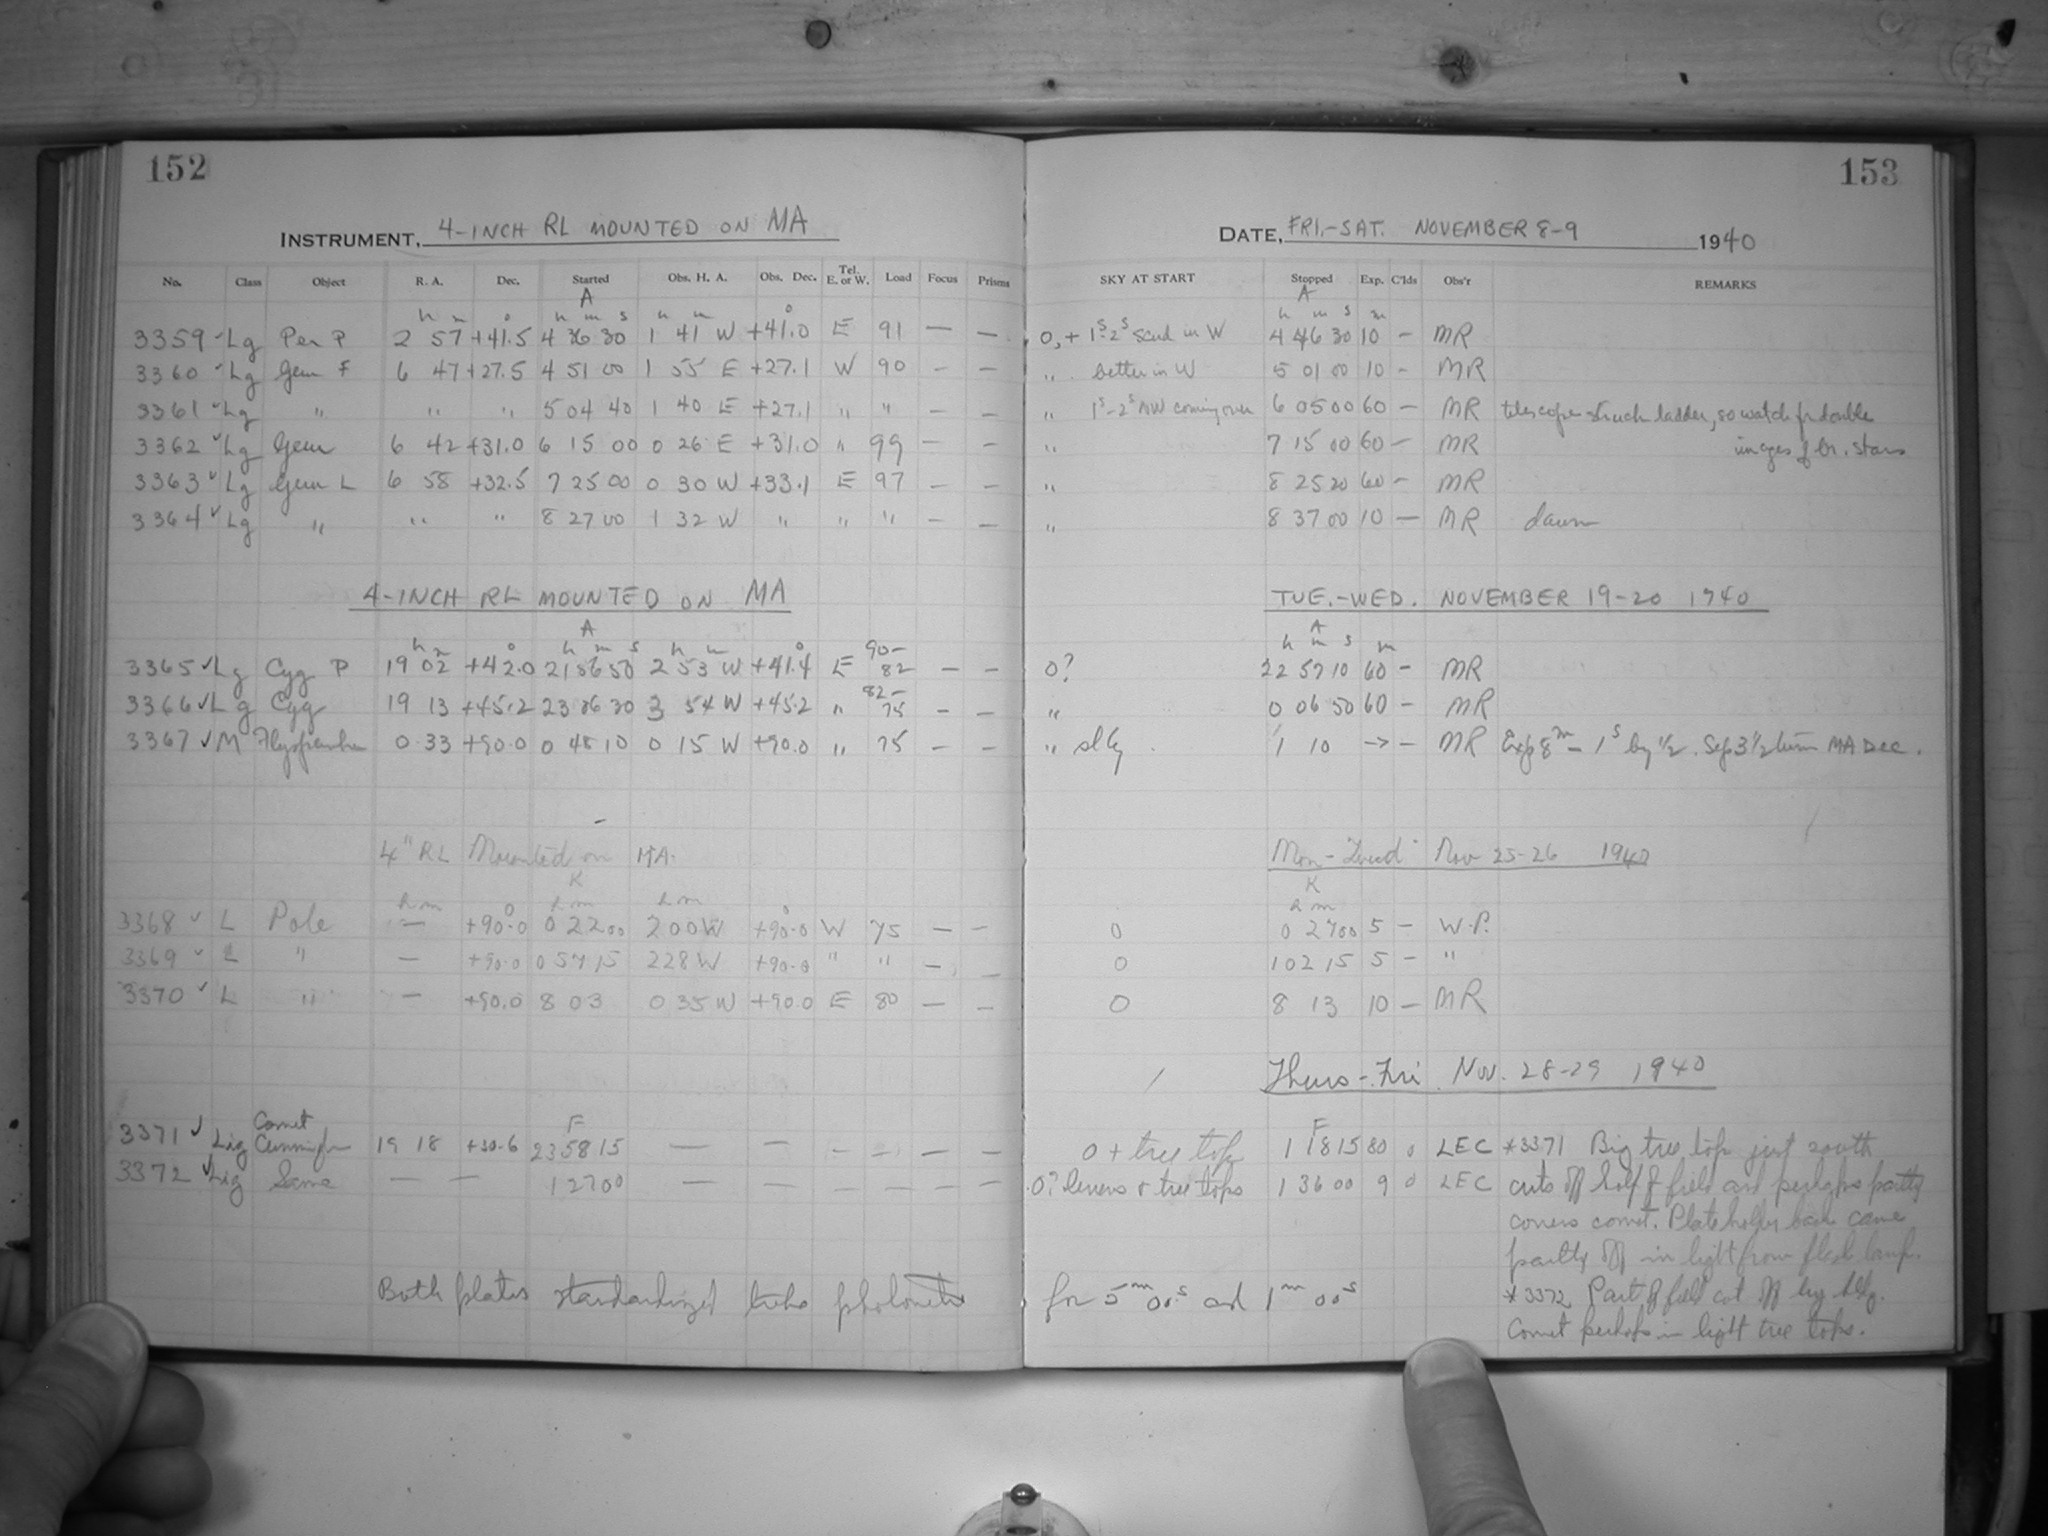 152
INSTRUMENT, 4-INCH RL MOUNTED ON MA
No. Class Object R. A. Dec. Started Obs. H. A. Obs. Dec. Tel. E. or W. Load Focus Prisms
A
h m ° h m s h m °
3359 ✓ Lg Per P 2 57 +41.5 4 36 30 1 41 W +41.0 E 91 — —
3360 ✓ Lg Gem F 6 47 +27.5 4 51 00 1 55 E +27.1 W 90 — —
3361 ✓ Lg " " " 5 04 40 1 40 E +27.1 " " — —
3362 ✓ Lg Gem 6 42 +31.0 6 15 00 0 26 E +31.0 " 99 — —
3363 ✓ Lg Gem L 6 58 +32.5 7 25 00 0 30 W +33.1 E 97 — —
3364 ✓ Lg " " " 8 27 00 1 32 W " " " — —
4-INCH RL MOUNTED ON MA
A
h m ° h m s h m °
3365 ✓ Lg Cyg P 19 02 +42.0 21 56 50 2 53 W +41.4 E 90-82 — —
3366 ✓ Lg Cyg 19 13 +45.2 23 06 30 3 54 W +45.2 " 82-75 — —
3367 ✓ M 0 33 +90.0 0 48 10 0 15 W +90.0 " 75 — —
4" RL Mounted on MA.
K
h m ° h m h m °
3368 ✓ L Pole — +90.0 0 22 00 2 00 W +90.0 W 75 — —
3369 ✓ L " — +90.0 0 57 15 2 28 W +90.0 " " — —
3370 ✓ L " — +90.0 8 03 0 35 W +90.0 E 80 — —
Comet
F
3371 ✓ Lig 19 18 +30.6 23 58 15 — — — — — —
3372 ✓ Lig Same — — 1 27 00 — — — — — —
Both plates standardized tube photometer
153
DATE, FRI.-SAT. NOVEMBER 8-9 1940
SKY AT START Stopped Exp. C'lds Obs'r REMARKS
A
h m s m
0, + 1ˢ-2ˢ scud in W 4 46 30 10 — MR
" better in W 5 01 00 10 — MR
" 1ˢ-2ˢ NW coming over 6 05 00 60 — MR telescope struck ladder, so watch for double
" 7 15 00 60 — MR images of br. stars
" 8 25 20 60 — MR
" 8 37 00 10 — MR dawn
TUE.-WED. NOVEMBER 19-20 1940
A
h m s m
0? 22 57 10 60 — MR
" 0 06 50 60 — MR
" 1 10 → — MR Exp 8ᵐ – 1ˢ by ½. Sep 3½ turn MA Dec.
Mon- Nov 25-26 1940
K
h m
0 0 27 00 5 — W.P.
0 1 02 15 5 — "
0 8 13 10 — MR
Thurs-Fri. Nov. 28-29 1940
F
0 + tree top 1 18 15 80 0 LEC *3371 Big tree top just south
0? & tree tops 1 36 00 9 0 LEC cuts off half of field and perhaps partly
covers comet. Plateholder back came
partly off in light from flash lamp.
for 5ᵐ 00ˢ and 1ᵐ 00ˢ
*3372 Part of field cut off by bldg.
Comet perhaps in light tree tops.